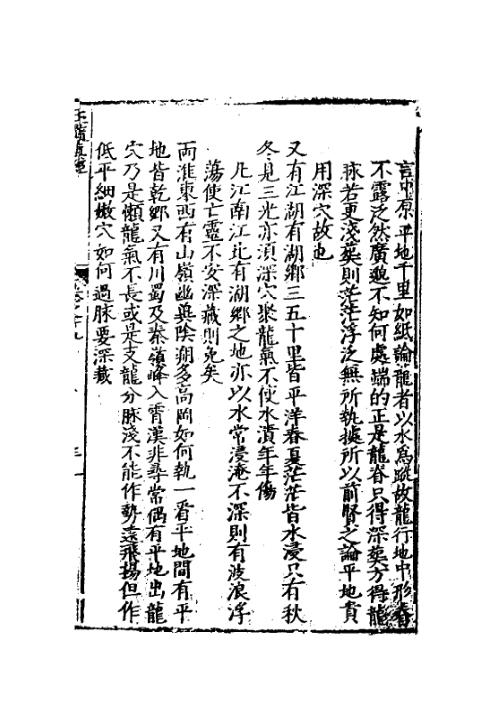 言中原平地千里如紙論龍者以水為蹤故龍行地中形脊
不露泛然廣邈不知何處端的正是龍脊只得深葬方得龍
脉若更淺葬則茫茫浮泛無所執據所以前賢之論平地貴
用深穴故也
又有江湖有湖鄉三五十里皆平洋春夏茫茫皆水浸只有秋
冬見三光亦須深穴聚龍氣不使水漬年年傷
凡江南江北有湖鄉之地亦以水常浸淹不深則有波浪浮
蕩使亡靈不安深藏則免矣
兩淮東西有山嶺幽與陰朔多高岡如何執一看平地間有平
地皆乾鄉又有川蜀及秦嶺峰入霄漢非尋常偶有平地出龍
穴乃是懶龍氣不長或是支龍分脉淺不能作勢遠飛揚但作
低平細嫩穴如何過脉要深藏